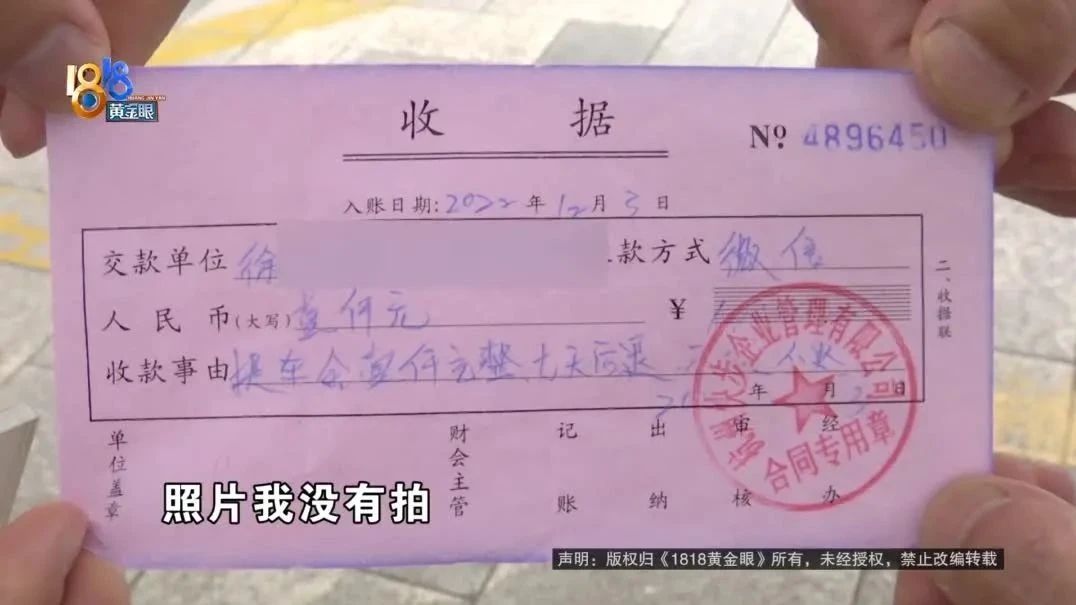 1818
HUANG JIN YAN
黄金眼
收 据
№ 4896450
入账日期:2022年12月3日
交款单位 徐 款方式 微信
人民币(大写) 壹仟元 ¥
收款事由 提车 壹仟元整 七天后退
年 月 日
二、收据联
企业管理有限公司
合同专用章
单位盖章 财会主管 记账 出纳 审核 经办
照片我没有拍
声明：版权归《1818黄金眼》所有，未经授权，禁止改编转载